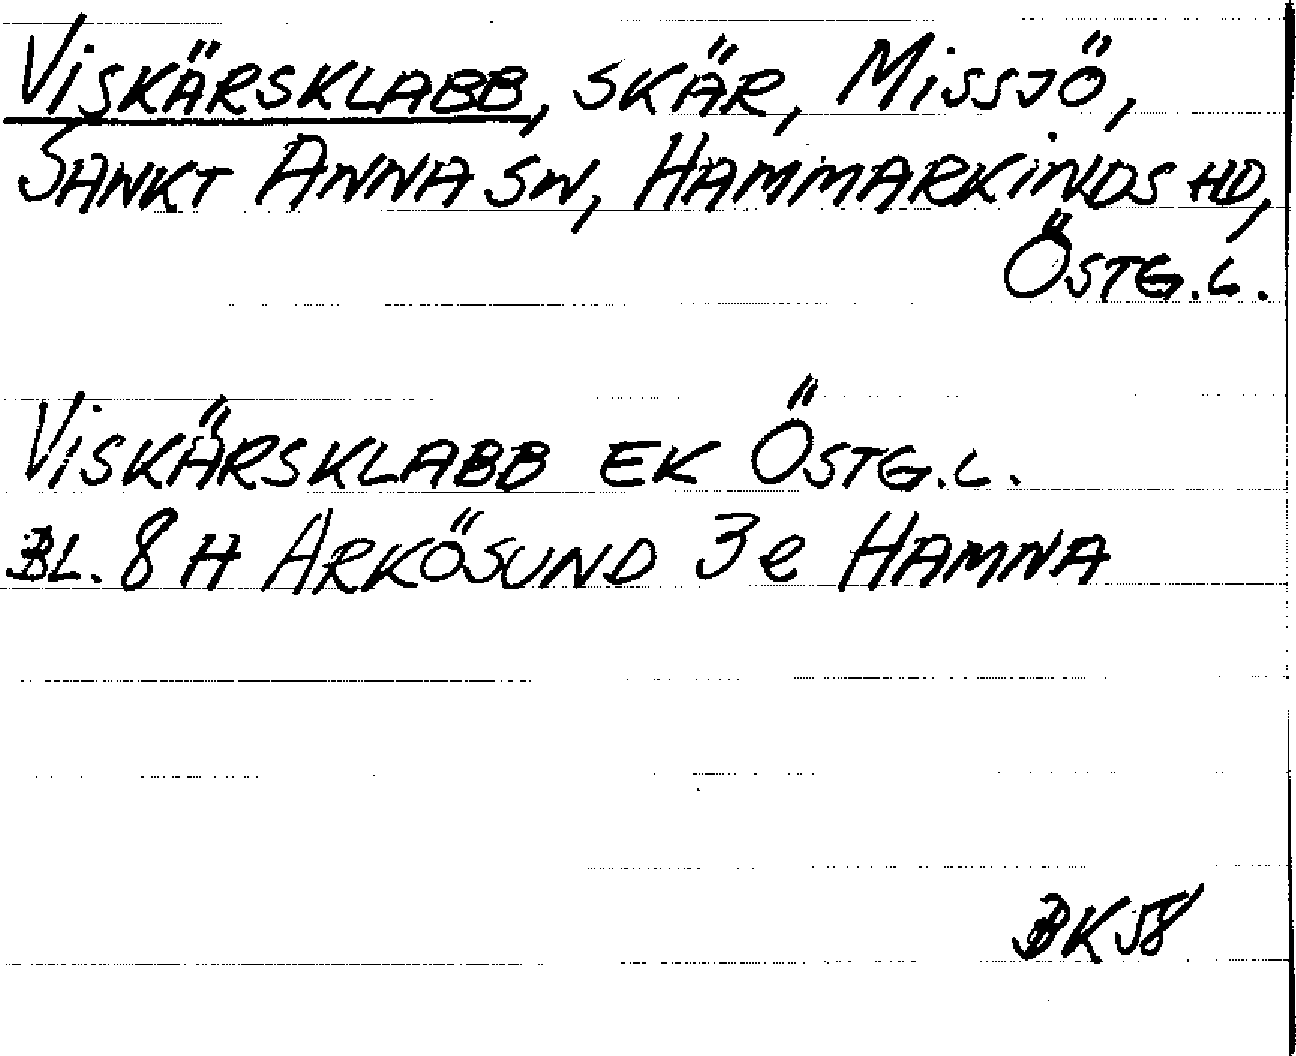 VISKÄRSKLABB, SKÄR, MISSJÖ,
SANKT ANNA SN, HAMMARKINDS HD,
ÖSTG.L.
VISKÄRSKLABB EK ÖSTG.L.
BL. 8 H ARKÖSUND 3e HAMNA
BK58